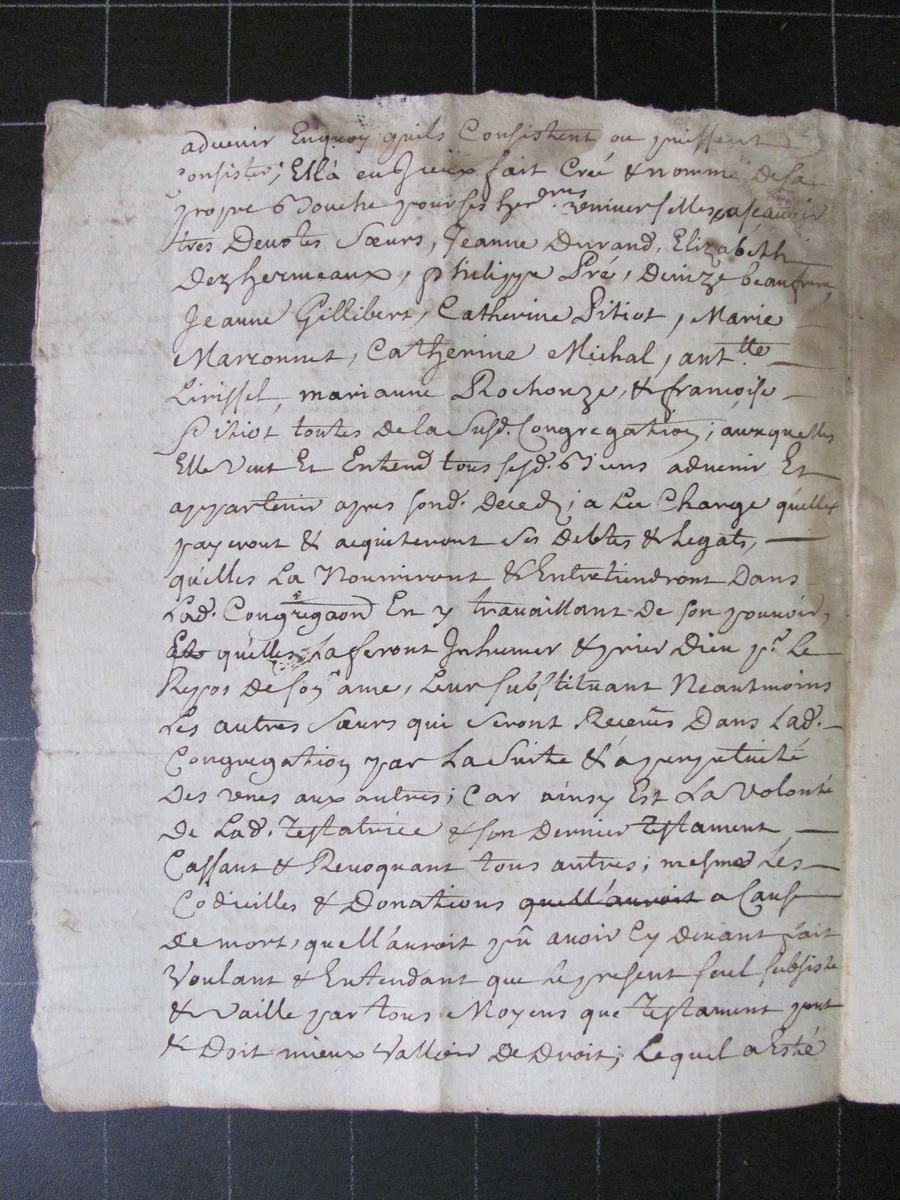 advenir Enquoy quils Consistent ou puissent
Consister; Ella eu Jceux fait Créé & nommé de sa
propre Bouche pour ses her.eres vniverselles, a sçavoir
tres Devotes Sœurs, Jeanne Durand, Elizabeth
Dezhermeaux, philippe Pré, Denize beaufrere,
Jeanne Gillibert, Catherine Pitiot, Marie
Marconnet, Catherine Michal, anttte
Lirissel, marianne Rochouze, & françoise
Pitiot toutes de la Susd. Congregation; auxquelles
Elle Veut Et Entend tous sesd. Biens advenir Et
appartenir apres sond. Deced; a La Charge quelles
payeront & aquiteront Ses Debtes & Legats,
quelles La Nourriront & Entretiendront Dans
Lad. Congregaon En y travaillant De son pouvoir,
quelles La feront Jnhumer & prier Dieu pr. Le
Repos de son ame, Leur substituant Neantmoins
Les autres Sœurs qui Seront Receues Dans Lad.
Congregation par La Suite & a perpetuité
Des vnes aux autres; Car ainsy Est La Volonté
De Lad. Testatrice & son Dernier Testament
Cassant & Revoquant tous autres; mesmes Les
Codicilles & Donations quell'auroit a Cause
De mort, quell'auroit pû avoir Cy devant fait
Voulant & Entendant que le present seul subsiste
& Vaille par tous Moyens que Testament peut
& Doit mieux Valloir De Droit; Lequel a Esté